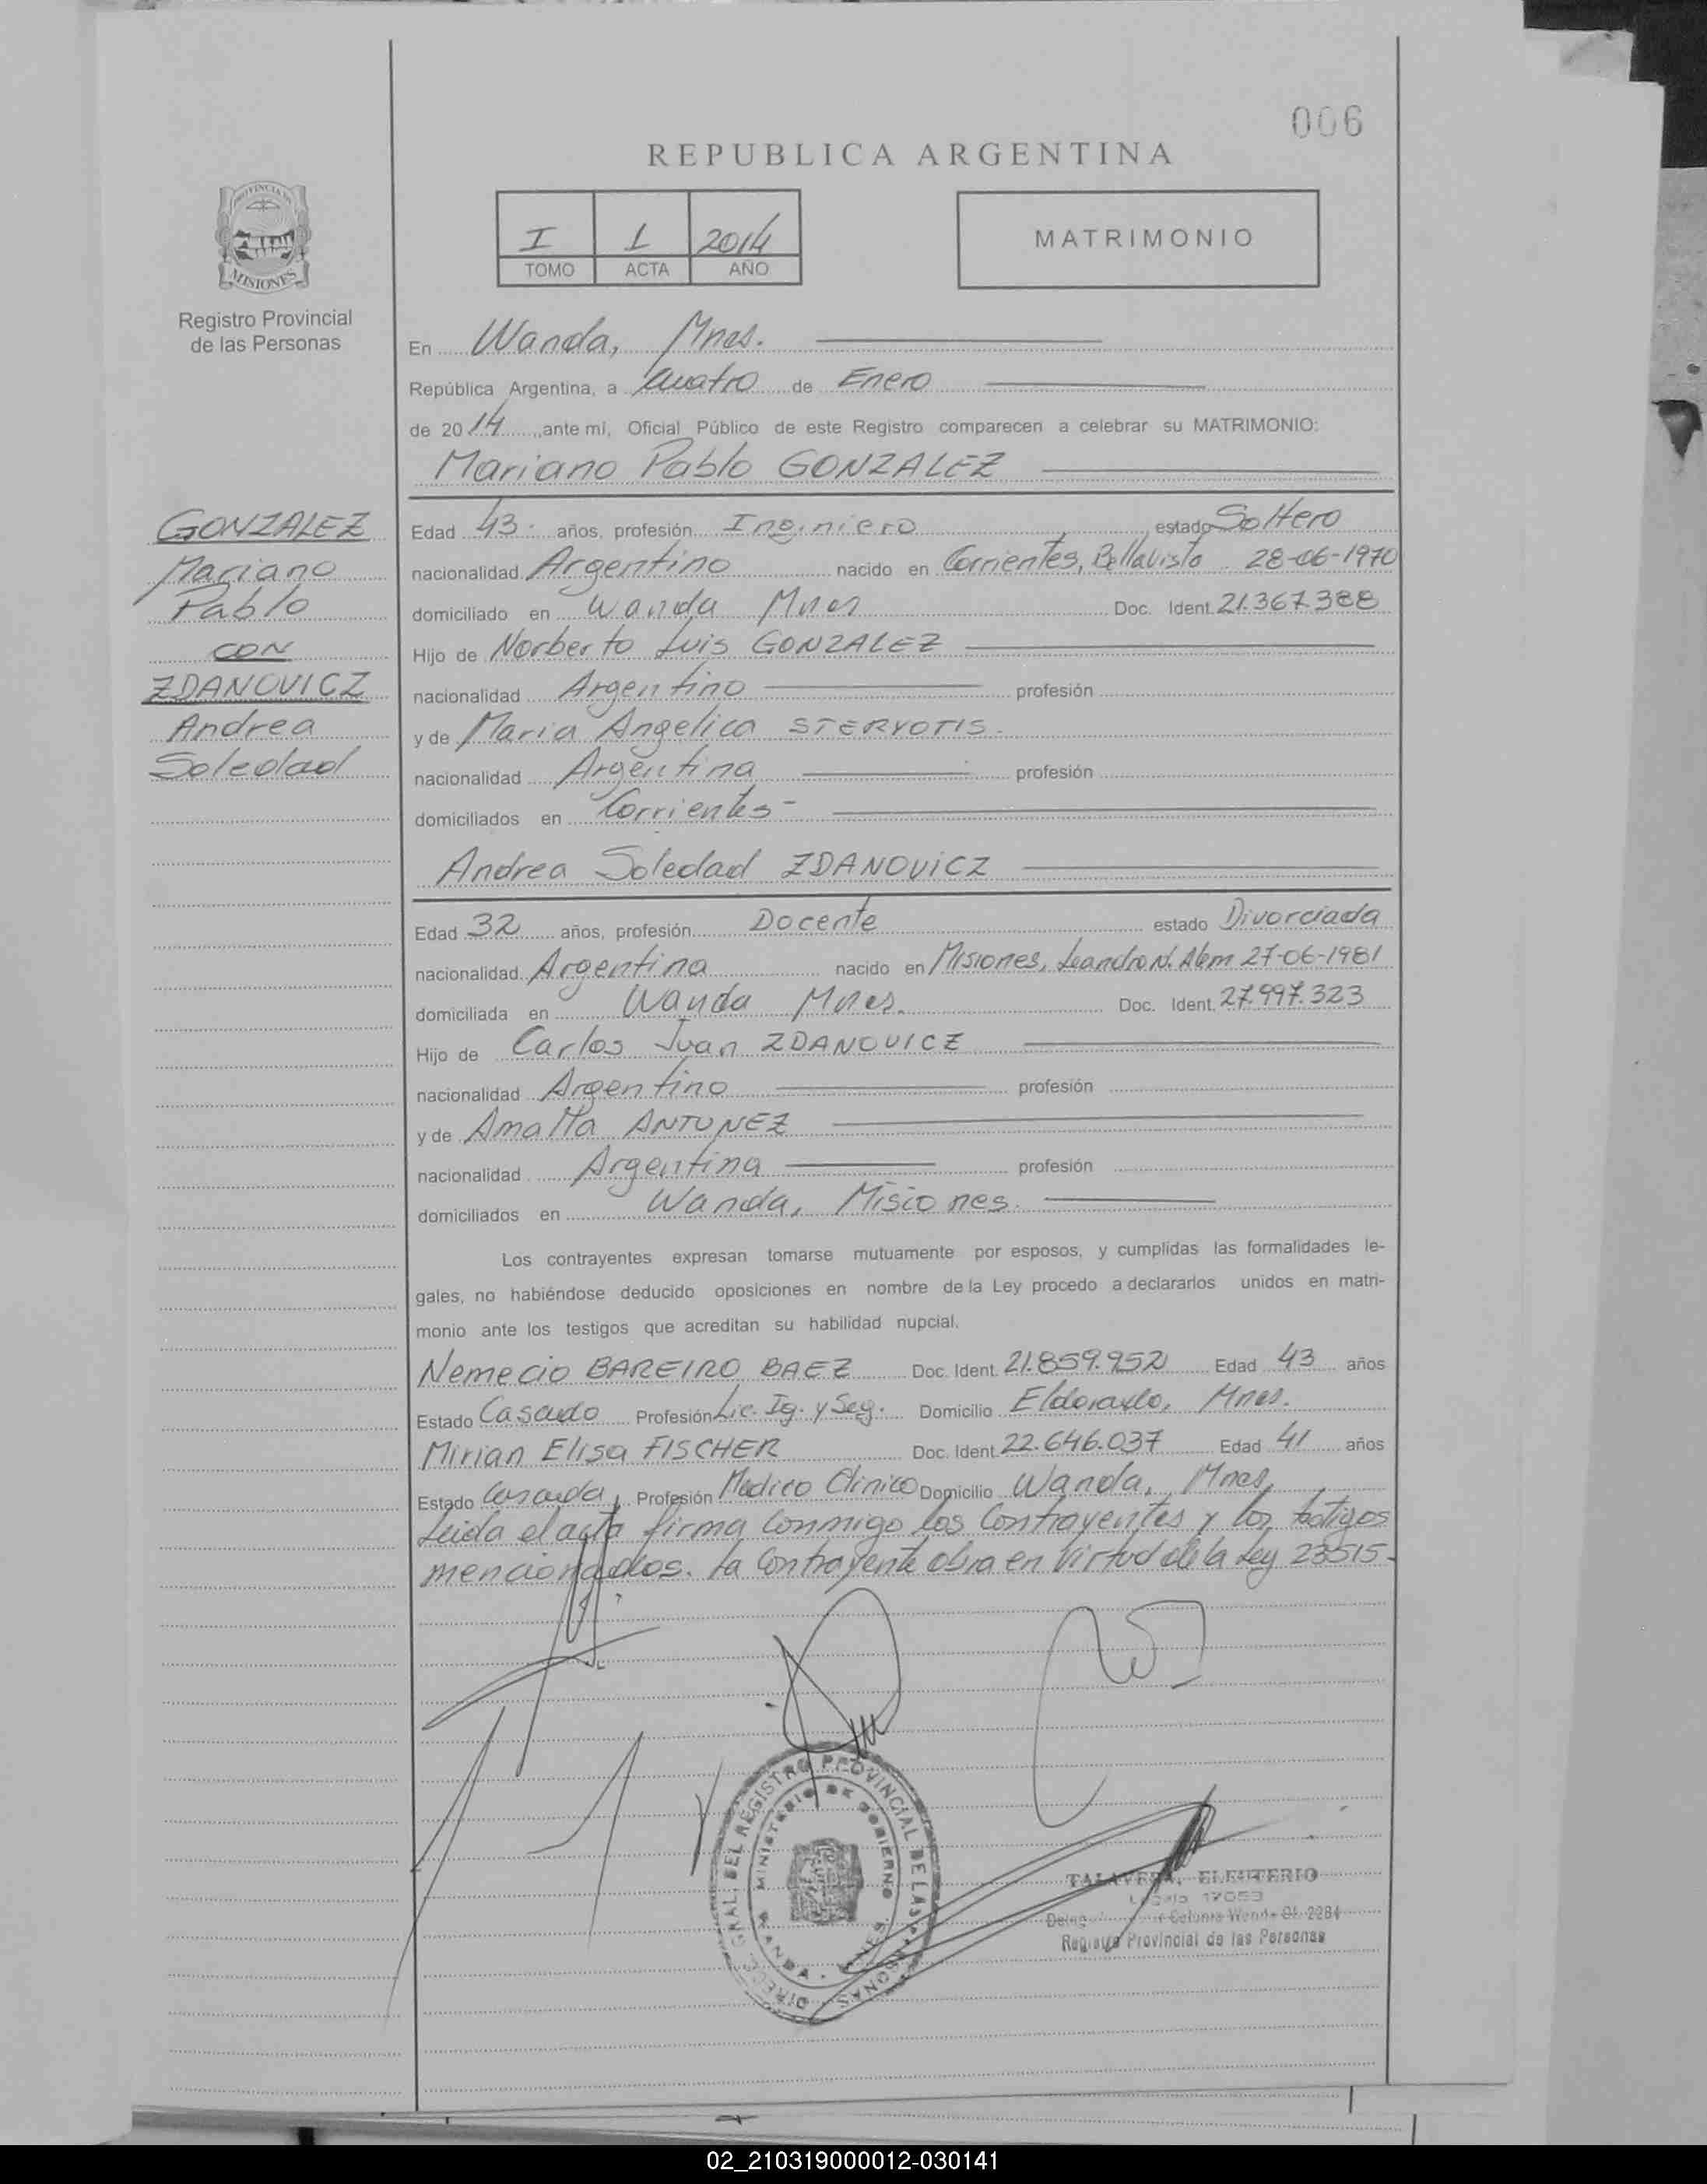 006
REPUBLICA ARGENTINA
PROVINCIA DE
MISIONES
Registro Provincial
de las Personas
I 1 2014
TOMO ACTA AÑO
MATRIMONIO
En Wanda, Mnes.
República Argentina, a Cuatro de Enero
de 2014, ante mí, Oficial Público de este Registro comparecen a celebrar su MATRIMONIO:
Mariano Pablo GONZALEZ
GONZALEZ
Mariano
Pablo
CON
ZDANOVICZ
Andrea
Soledad
Edad 43 años, profesión Inginiero estado Soltero
nacionalidad Argentino nacido en Corrientes, Bellavista 28-06-1970
domiciliado en Wanda Mnes Doc. Ident. 21.367.388
Hijo de Norberto Luis GONZALEZ
nacionalidad Argentino profesión
y de Maria Angelica STERVOTIS.
nacionalidad Argentina profesión
domiciliados en Corrientes-
Andrea Soledad ZDANOVICZ
Edad 32 años, profesión Docente estado Divorciada
nacionalidad Argentina nacido en Misiones, Leandro N. Alem 27-06-1981
domiciliada en Wanda Mnes. Doc. Ident. 27.997.323
Hijo de Carlos Juan ZDANOVICZ
nacionalidad Argentino profesión
y de Amalia ANTUNEZ
nacionalidad Argentina profesión
domiciliados en Wanda, Misiones.
Los contrayentes expresan tomarse mutuamente por esposos, y cumplidas las formalidades le-
gales, no habiéndose deducido oposiciones en nombre de la Ley procedo a declararlos unidos en matri-
monio ante los testigos que acreditan su habilidad nupcial.
Nemecio BAREIRO BAEZ Doc. Ident. 21.859.952 Edad 43 años
Estado Casado Profesión Lic. Ig. y Seg. Domicilio Eldorado, Mnes.
Mirian Elisa FISCHER Doc. Ident. 22.646.037 Edad 41 años
Estado Casada Profesión Medico Clinico Domicilio Wanda, Mnes
Leida el acta firma conmigo los Contrayentes y los testigos
mencionados. La Contrayente obra en Virtud de la Ley 23515-
DIRECC. GRAL. DEL REGISTRO PROVINCIAL DE LAS PERSONAS
MINISTERIO DE GOBIERNO
WANDA - MNES.
TALAVERA, ELEUTERIO
Legajo 17053
Colonia Wanda Of. 2284
Registro Provincial de las Personas
02_210319000012-030141